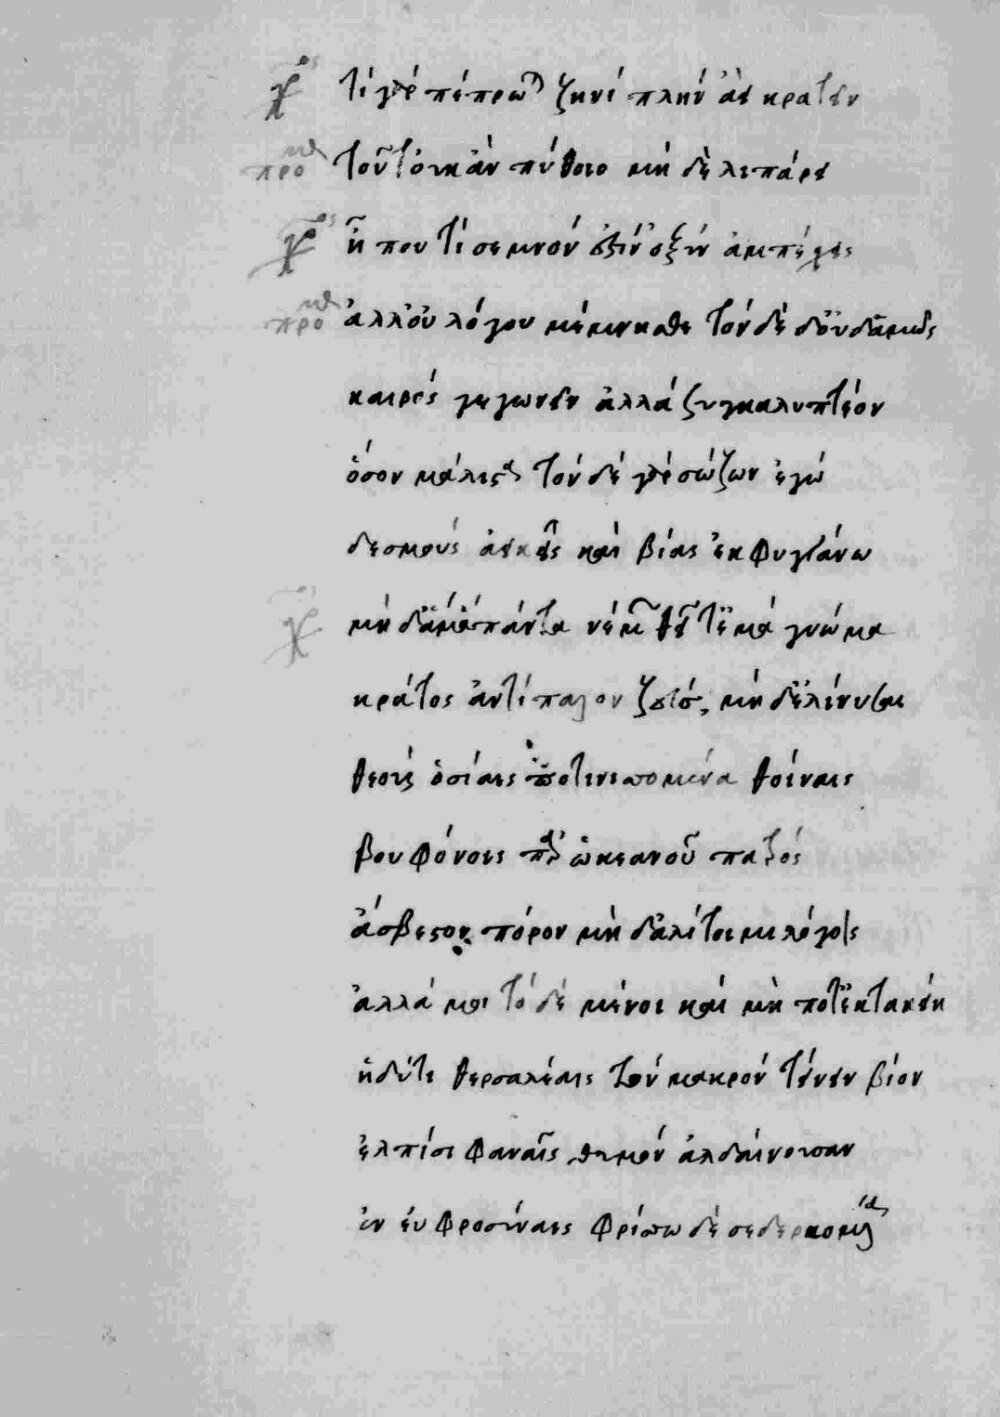 χο τί γὰρ πέπρωται ζηνὶ πλὴν ἀεὶ κρατεῖν
προμηθ τοῦτ' οὐκ ἂν πύθοιο μὴ δὲ λιπάρει
χος ἦ που τί σεμνόν ἐστιν ὃ ξυναμπέχεις
προμηθ ἀλλ' οὐ λόγου μέμνησθε τόνδε δ' οὐδαμῶς
καιρὸς γεγωνεῖν ἀλλὰ συγκαλυπτέον
ὅσον μάλιστα τόνδε γὰρ σώζων ἐγὼ
δεσμοὺς ἀεικεῖς καὶ βίας ἐκφυγγάνω
χο μηδάμ' ὁ πάντα νέμων θεῖτ' ἐμᾷ γνώμᾳ
κράτος ἀντίπαλον ζεὺς, μὴ δ' ἐλινύσαιμι
θεοὺς ὁσίαις ποτινισσομένα θοίναις
βουφόνοις παρ' ὠκεανοῦ πατρὸς
ἄσβεστον πόρον μὴ δ' ἀλίτοιμι λόγοις
ἀλλά μοι τόδε μένοι καὶ μὴ ποτ' ἐκτακείη
ἡδύ τι θαρσαλέαις τὸν μακρὸν τείνειν βίον
ἐλπίσι φαναῖς θυμὸν ἀλδαίνουσαν
ἐν εὐφροσύναις φρίσσω δέ σε δερκομένα